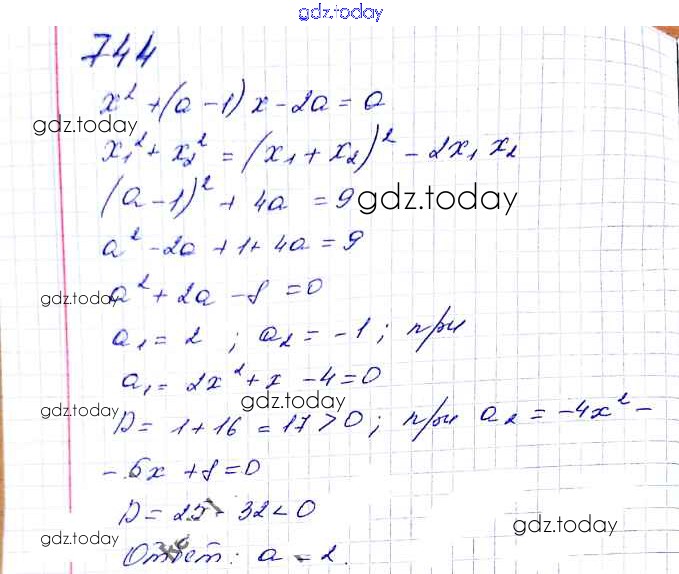 gdz.today
744
x² + (a - 1) x - 2a = a
gdz.today
x₁² + x₂² = (x₁ + x₂)² - 2x₁ x₂
(a - 1)² + 4a = 9
gdz.today
a² - 2a + 1 + 4a = 9
a² + 2a - 8 = 0
gdz.today
a₁ = 2 ; a₂ = -1 ; при
a₁ = 2x² + x - 4 = 0
gdz.today
gdz.today
D = 1 + 16 = 17 > 0 ; при a₂ = -4x² -
- 5x + 8 = 0
D = 25 - 32 < 0
gdz.today
gdz.today
Ответ: a = 2.